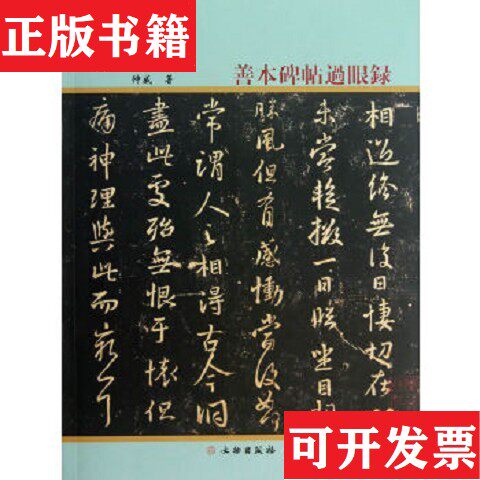 正版书籍
仲威 著
善本碑帖過眼録
相過終無復日悽切在
未嘗暫掇一日臨坐目想
勝風但有感慟當復如
常謂人之相得古今洞
盡此處殆無恨于懷但
痛神理與此而窮耳
文物出版社
闪电发货
开票可谈